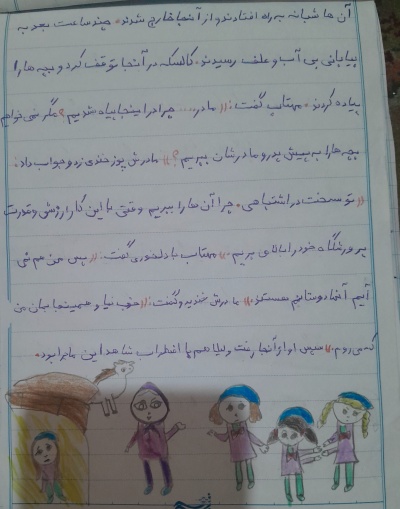 آن ها شبانه به راه افتادند و از آنجا خارج شدند. چند ساعت بعد به
بیابانی بی آب و علف رسیدند. کالسکه در آنجا توقف کرد و بچه ها را
پیاده کردند. مهتاب گفت: «مادر.... چرا در اینجا پیاده شدیم؟ مگر نمی خواهم
بچه ها را به پیش پدر و مادرشان ببریم؟» مادرش پوزخندی زد و جواب داد:
«تو سخت در اشتباهی. چرا آن ها را ببریم وقتی با این کار ارزش و قدرت
پرورشگاه خود را بالا می بریم.» مهتاب با دلخوری گفت: «پس من هم نمی
آیم آنها دوستانم هستند.» مادرش خندید و گفت: «خب نیا و همینجا بمان من
که می روم.» سپس او از آنجا رفت و لیلا هم با اضطراب شاهد این ماجرا بود.